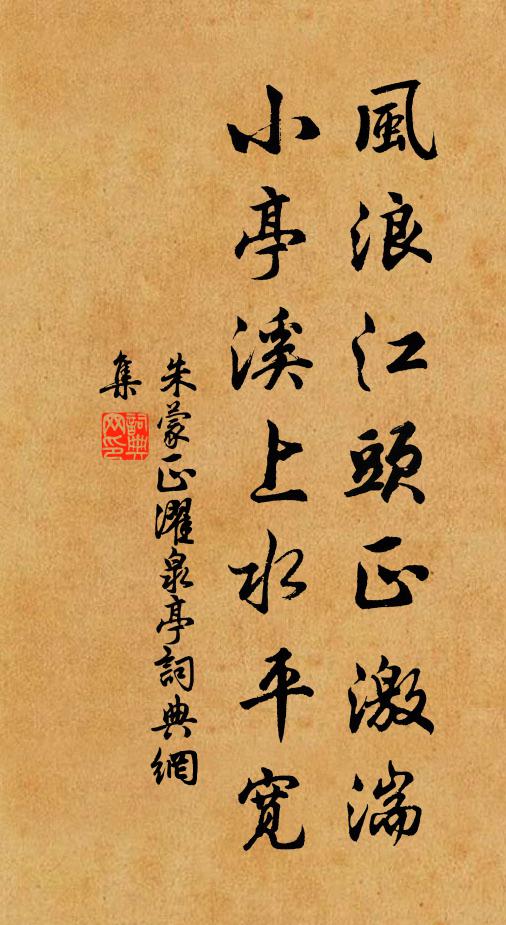 風浪江頭正激湍
小亭溪上水平寬
朱蒙正濯泉亭詞典網
集
詞典
网印